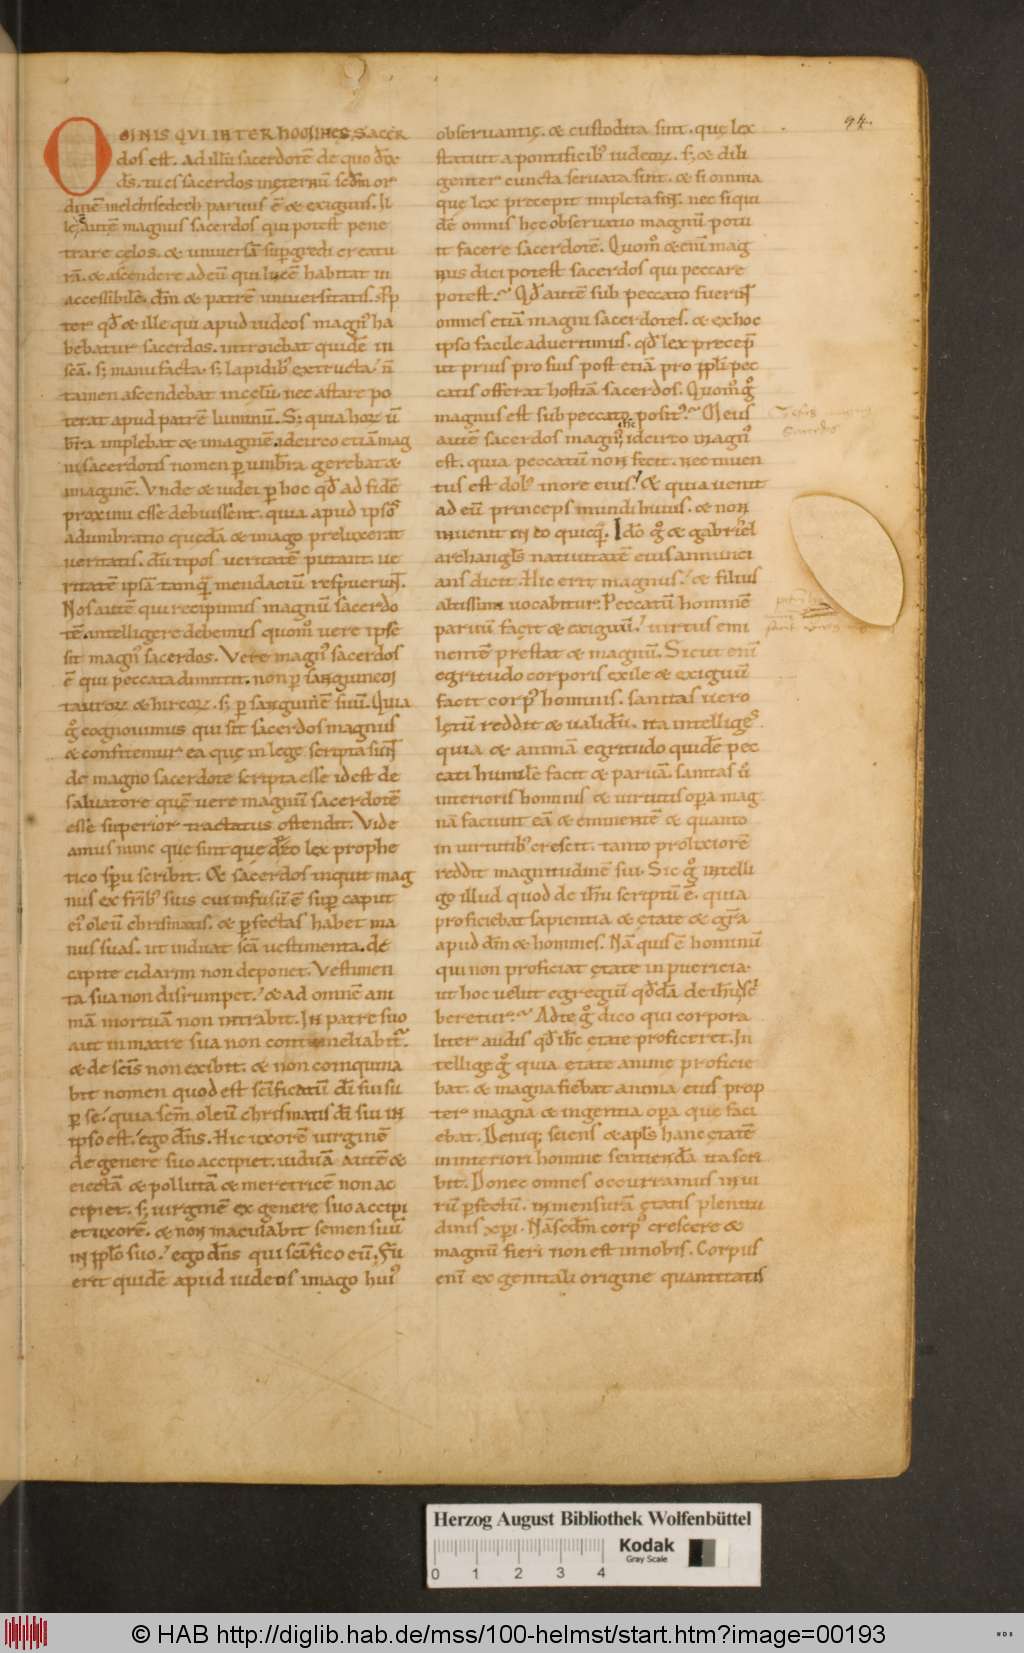 OMNIS QVI INTER HOMINES, SACER
dos est. Ad illū sacerdotē de quo dix̄
d̄s. tu es sacerdos in ęternū scd̄m or
dinē melchisedech paruus ē & exiguus. Il
lę autē magnus sacerdos qui potest pene
trare cęlos. & uniuersā sup̄gredi creatu
rā. & ascendere ad eū qui lucē habitat in
accessibilē. dn̄m & patrē uniuersitatis. Pp
ter qd̄ & ille qui apud iudeos magn' ha
bebatur sacerdos. introiebat quidē in
scā. s; manu facta. s; lapidib' extructa. n̄
tamen ascendebat in celū. nec astare po
terat apud patrē luminū. S; quia hoꝝ ū
bra implebat & imaginē. idcirco etiā mag
ni sacerdotis nomen p umbra gerebat &
imaginē. Vnde & iudei p hoc qd̄ ad fidē
proximi esse debuissent. quia apud ipsos
adumbratio quedā & imago preluxerat
ueritatis. dū tipos ueritatē putant. ue
ritatē ipsā tamquā mendaciū respuerunt.
Nos autē qui recipimus magnū sacerdo
tē. intelligere debemus quom̄ uere ipse
sit magn' sacerdos. Vere magn' sacerdos
ē qui peccata dimittit. non p sanguinem
tauroꝝ & hircoꝝ. s; p sanguinē suū. Quia
g° cognouimus qui sit sacerdos magnus
& confitemur ea quę in lege scripta sunt
de magno sacerdote scripta esse id est de
saluatore quē uere magnū sacerdotē
esse superior tractatus ostendit. Vide
amus nunc que sint que de eo lex prophe
tico spū scribit. & sacerdos inquit mag
nus ex frīb' suis cui infusū ē sup caput
ei' oleū chrismatis. & pfectas habet ma
nus suas. ut induat scā uestimenta. de
capite cidarim non deponet. Vestimen
ta sua non disrumpet. & ad omnē ani
mā mortuā non intrabit. In patre suo
aut in matre sua non contaminabitur.
& de scīs non exibit. & non comquina
bit nomen quod est scīficatū dī sui su
p se. quia scm̄ oleū chrismatis dī sui in
ipso est. ego dn̄s. Hic uxorē uirginē
de genere suo accipiet. uiduā autē &
eiectā & pollutā & meretricē non ac
cipiet. s; uirginē ex genere suo accipi
et uxorē. & non maculabit semen suū
in pplo suo. ego dn̄s qui scīfico eū. Fu
erit quidē apud iudeos imago hui'
obseruantię. & custodita sint. quę lex
statuit a pontificib' iudeoꝝ. s; & dili
genter cuncta seruata sint. & si omnia
que lex precepit impleta sint. nec si qui
dē omnis hęc obseruatio magnū potu
it facere sacerdotē. Quom̄ & enī mag
nus dici potest sacerdos qui peccare
potest. Qd̄ autē sub peccato fuerint
omnes etiā magni sacerdotes. & ex hoc
ipso facile aduertimus. qd̄ lex precepit
ut prius pro suis post etiā pro ppli pec
catis offerat hostiā sacerdos. Quom̄ g°
magnus est sub peccato posit'. Meus
autē sacerdos magn' hic idcirco magn'
est. quia peccatū non fecit. nec inuen
tus est dol' in ore eius. & quia uenit
ad eū princeps mundi huius. & non
inuenit in eo quicq̄. Ido g° & gabriel
archangls natiuitatē eius annunci
ans dicit. Hic erit magnus. & filius
altissimi uocabitur. Peccatū hominē
paruū facit & exiguū. uirtus emi
nentē prestat & magnū. Sicut enī
egritudo corporis exile & exiguū
facit corp' hominis. sanitas uero
lętū reddit & ualidū. ita intelliges
quia & animā egritudo quidē pec
cati humilē facit & paruā. sanitas ū
interioris hominis & uirtutis opa mag
nā faciunt eā & eminentē & quanto
in uirtutib' crescit. tanto prolixiorē
reddit magnitudinē sui. Sic g° intelli
go illud quod de ihū scriptū ē. quia
proficiebat sapientia & ętate & gr̄a
apud dm̄ & hommes. Nā quis ē hominū
qui non proficiat ętate in puericia.
ut hoc uelut egregiū qd̄dā de ihū scri
beretur. Ad te g° dico qui corpora
liter audis qd̄ ihc ętate proficeret. In
tellige g° quia etate anime proficie
bat. & magna fiebat anima eius prop
ter magna & ingentia opa que faci
ebat. Deniq; sciens & apls hanc ętatē
in interiori homine sentiendā ita scri
bit. Donec omnes occurramus in ui
rū pfectū. in mensurā ętatis plenitu
dinis xpi. Nā scdm̄ corp' crescere &
magnū fieri non est in nobis. Corpus
enī ex genitali origine quantitatis
94.
Herzog August Bibliothek Wolfenbüttel
Kodak
Gray Scale
0 1 2 3 4
© HAB http://diglib.hab.de/mss/100-helmst/start.htm?image=00193